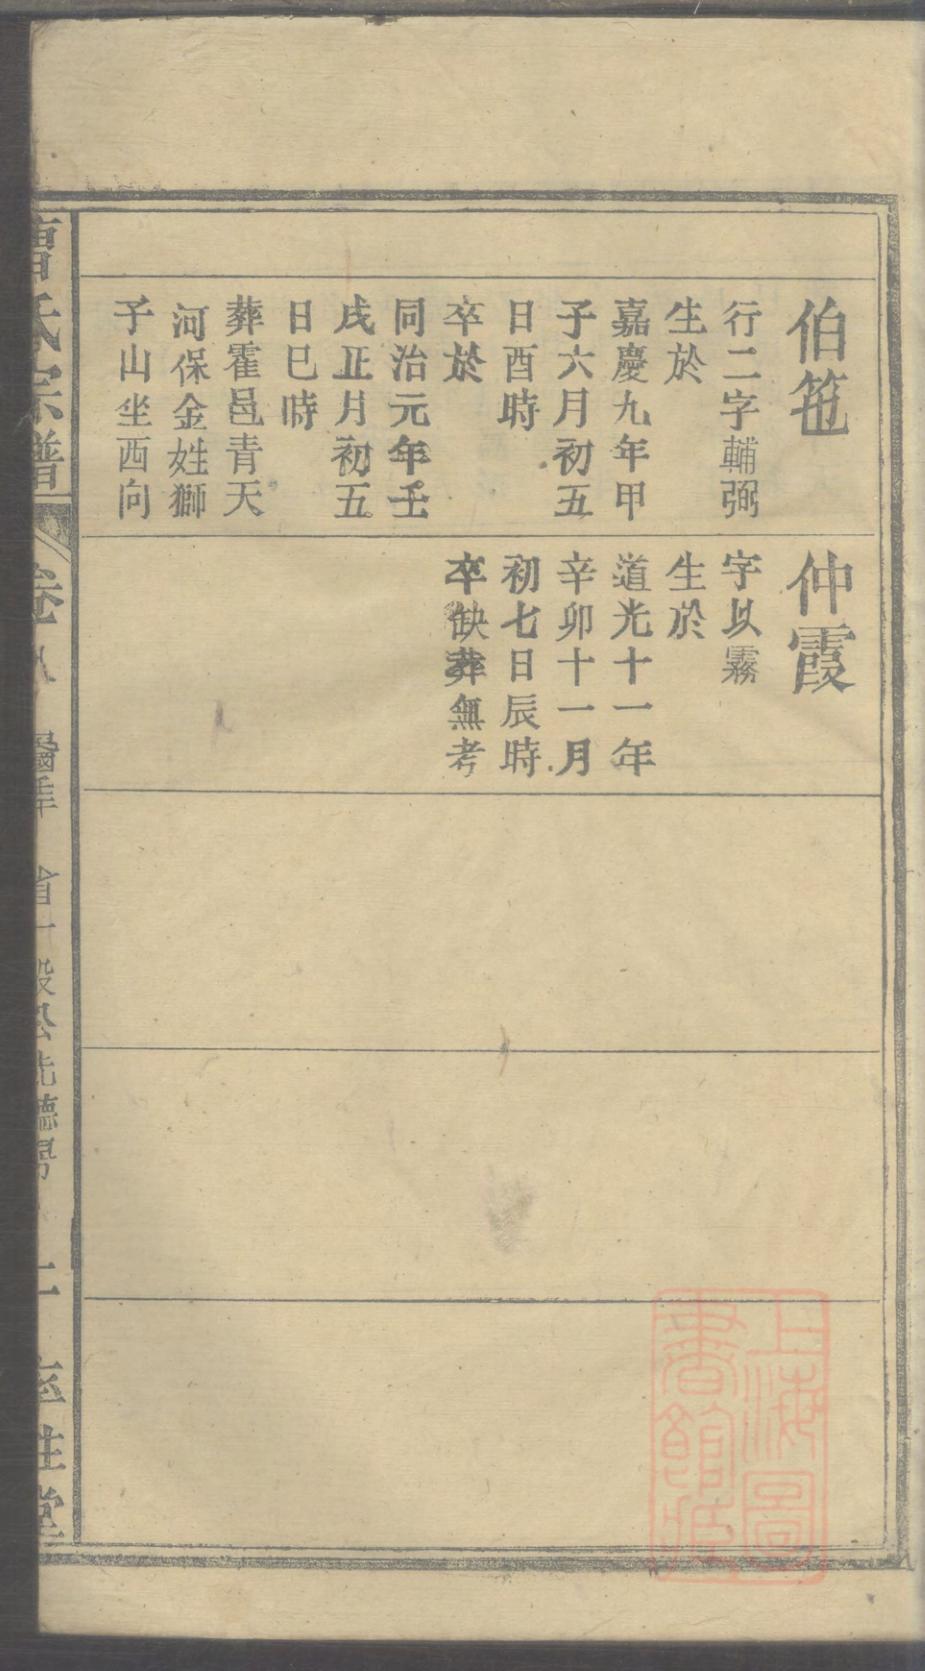 伯笹
行二字輔弼
生於
嘉慶九年甲
子六月初五
日酉時
卒於
同治元年壬
戌正月初五
日巳時
葬霍邑青天
河保金姓獅
子山坐西向
仲霞
字以霧
生於
道光十一年
辛卯十一月
初七日辰時
卒缺葬無考
氏宗譜
性堂
上海圖
書館藏